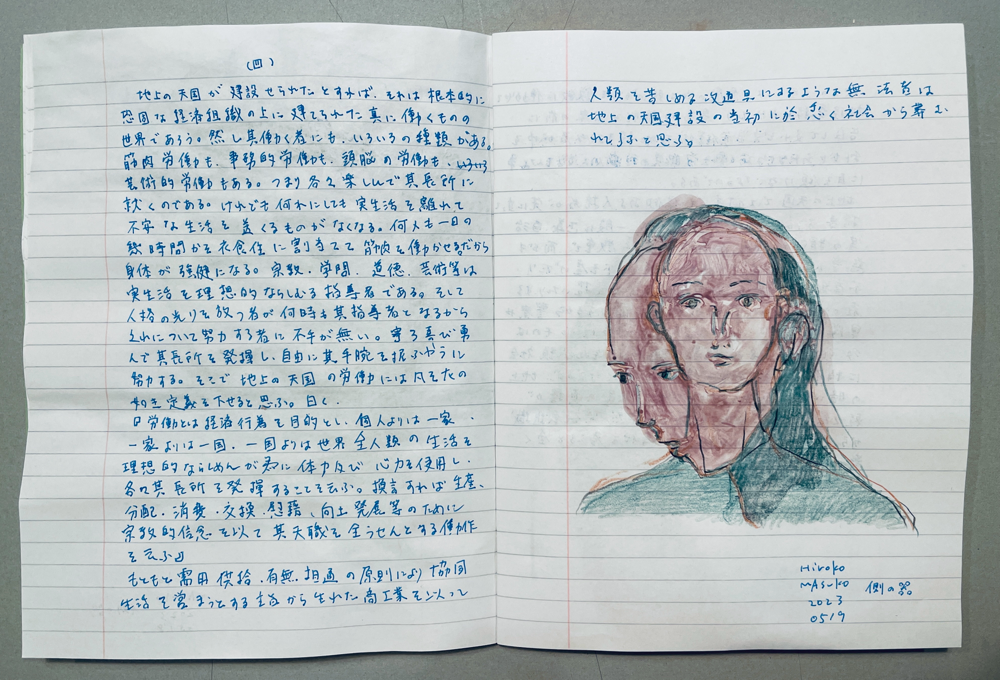 (四)
地上の天国が建設せられたとすれば、それは根本的に
恐固な経済組織の上に建てられた真に働くものの
世界であろう。然し其働く者にも、いろいろの種類がある。
筋肉労働も、事務的労働も、頭脳の労働も、いろいろ
芸術的労働もある。つまり各々楽しんで其長所に
就くのである。けれども何れにしても実生活を離れて
不安な生活を送くるものがなくなる。何人も一日の
幾時間かを衣食住に割当てて筋肉を働かせるだから
身体が強健になる。宗教、学問、道徳、芸術等は
実生活を理想的ならしむる指導者である。そして
人格の光りを放つ者が何時も其指導者となるから
それについて努力する者に不平が無い。寧ろ真び勇
んで其長所を発揮し、自由に其手腕を振ふやうに
努力する。そこで地上の天国の労働には凡そ左の
如き定義を下せると思ふ。曰く、
「労働とは経済行為を目的とし、個人よりは一家、
一家よりは一国、一国よりは世界全人類の生活を
理想的ならしめんが為に体力及び心力を使用し、
各々其長所を発揮することを云ふ。換言すれば生産、
分配、消費、交換、慰藉、向上発展等のために
宗教的信念を以て其天職を全うせんとする働作
を云ふ」
もともと需用供給、有無相通の原則により協同
生活を営まうとする から生れた商工業を以って
人類を苦しめる次道具にするような無法者は
地上の天国建設の当初に於 く社会から葬む
れてしまふと思ふ。
Hiroko
MAsuko
2023
0519
側の器。